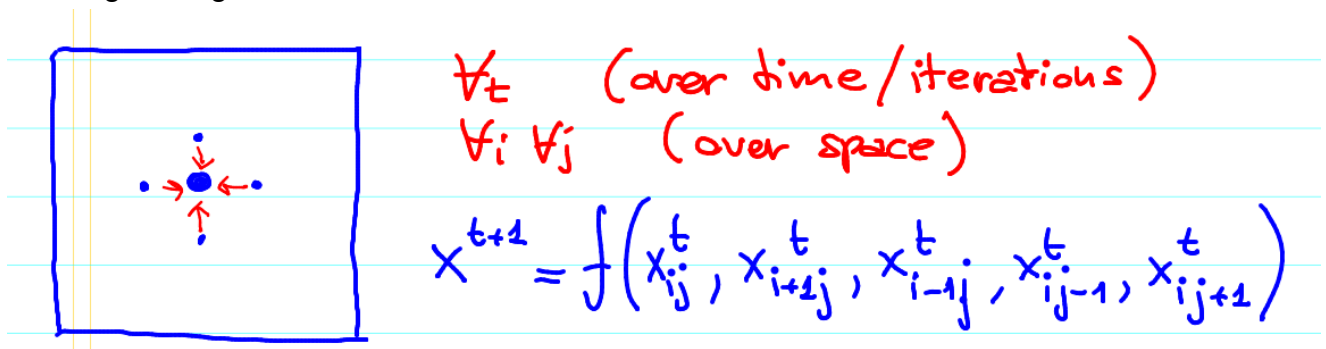 ∀t (over time/iterations)
∀i ∀j (over space)
x^{t+1} = f(x^t_{ij}, x^t_{i+1j}, x^t_{i-1j}, x^t_{ij-1}, x^t_{ij+1})